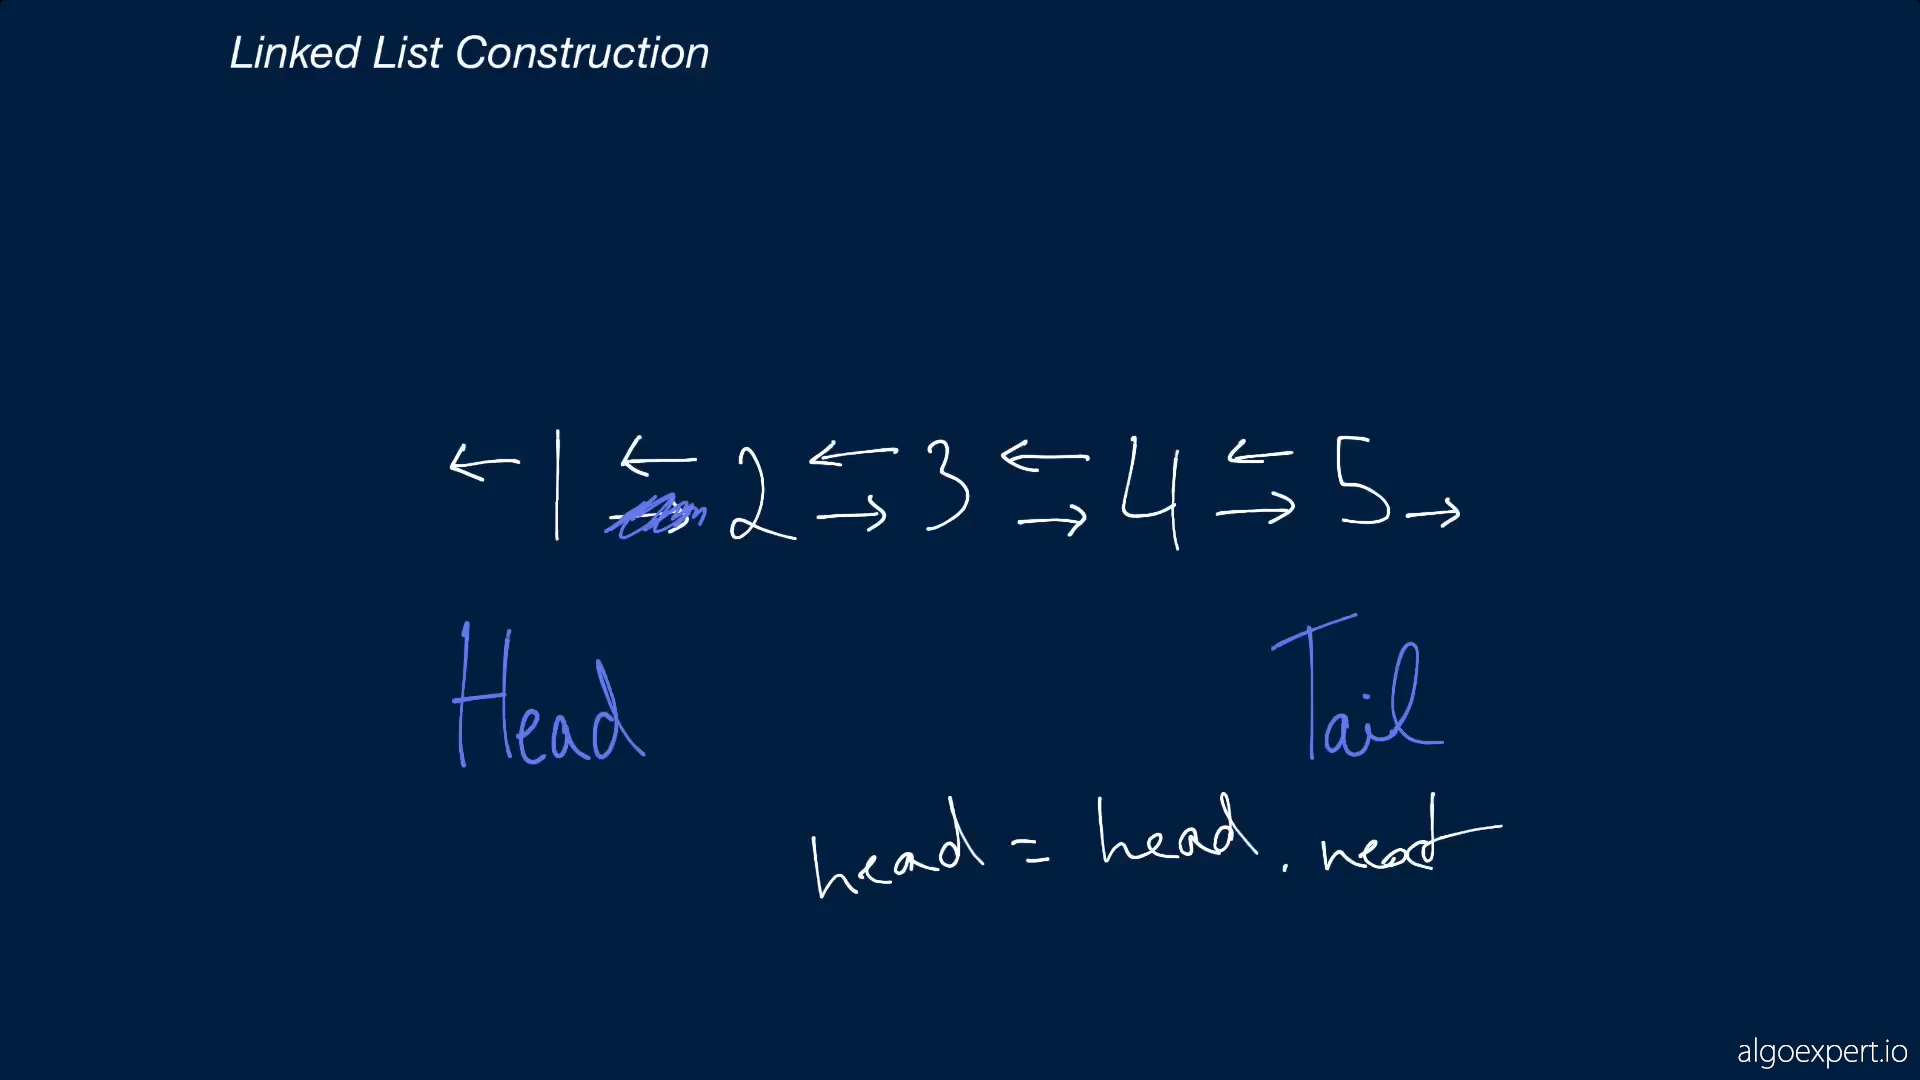 Linked List Construction
← 1 ← → 2 ← → 3 ← → 4 ← → 5 →
Head Tail
head = head . next
algoexpert.io